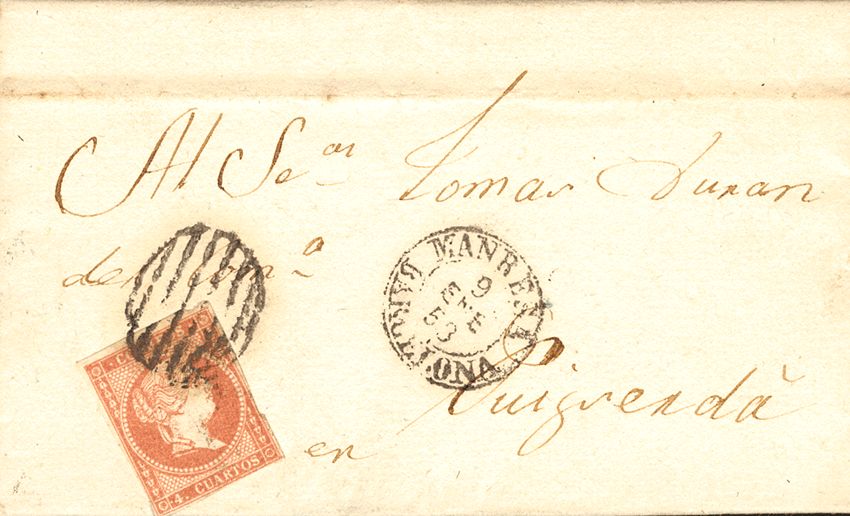 Al Se.or Tomas Duran
del Com.o
MANRESA
9
ENE
58
BARCELONA
en Puigcerdà
4. CUARTOS